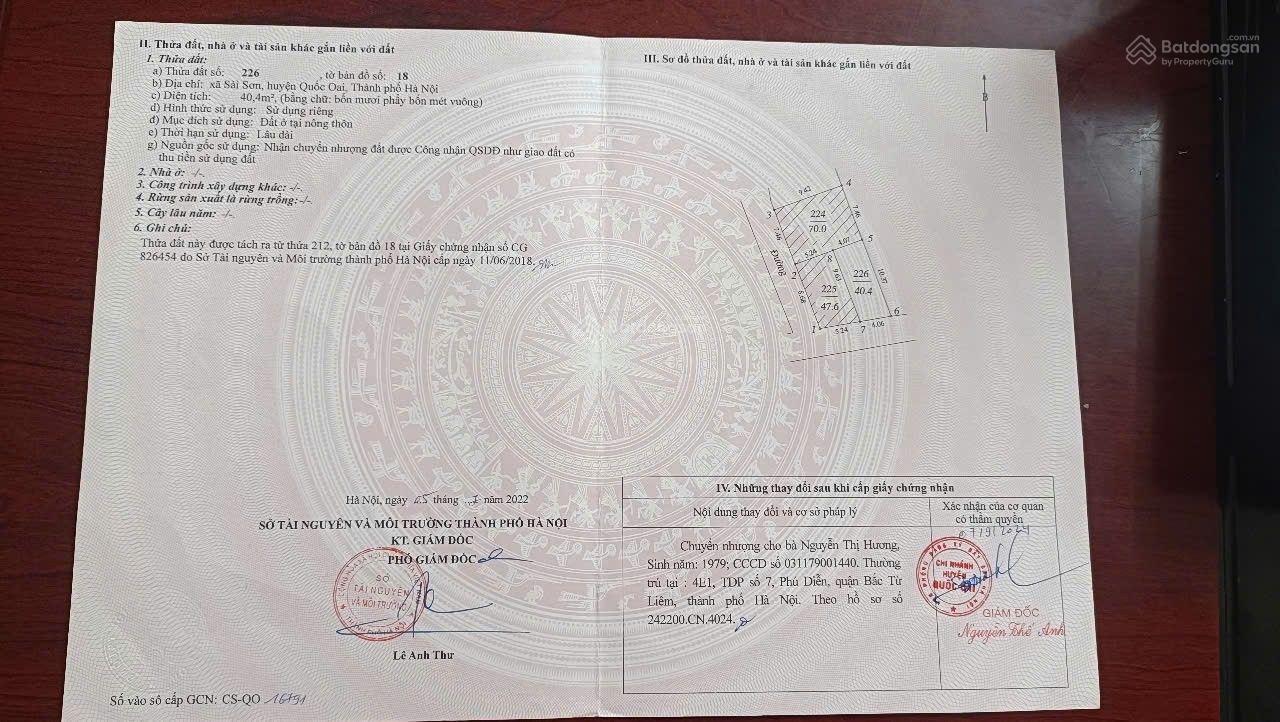 II. Thửa đất, nhà ở và tài sản khác gắn liền với đất
1. Thửa đất:
a) Thửa đất số: 226 , tờ bản đồ số: 18
b) Địa chỉ: xã Sài Sơn, huyện Quốc Oai, Thành phố Hà Nội
c) Diện tích: 40,4m², (bằng chữ: bốn mươi phẩy bốn mét vuông)
d) Hình thức sử dụng: Sử dụng riêng
đ) Mục đích sử dụng: Đất ở tại nông thôn
e) Thời hạn sử dụng: Lâu dài
g) Nguồn gốc sử dụng: Nhận chuyển nhượng đất được Công nhận QSDĐ như giao đất có
thu tiền sử dụng đất
2. Nhà ở: -/-
3. Công trình xây dựng khác: -/-
4. Rừng sản xuất là rừng trồng: -/-
5. Cây lâu năm: -/-
6. Ghi chú:
Thửa đất này được tách ra từ thửa 212, tờ bản đồ 18 tại Giấy chứng nhận số CG
826454 do Sở Tài nguyên và Môi trường thành phố Hà Nội cấp ngày 11/06/2018
Hà Nội, ngày 25 tháng 7 năm 2022
SỞ TÀI NGUYÊN VÀ MÔI TRƯỜNG THÀNH PHỐ HÀ NỘI
KT. GIÁM ĐỐC
PHÓ GIÁM ĐỐC
SỞ
TÀI NGUYÊN
VÀ MÔI TRƯỜNG
Lê Anh Thư
Số vào sổ cấp GCN: CS-QO
III. Sơ đồ thửa đất, nhà ở và tài sản khác gắn liền với đất
B
9.62
4
3
224
70.0
7.46
7.46
Đường
5.24
4.07
5
2
8
9.63
10.37
226
40.4
6.68
225
47.6
6
1
5.24
7
4.06
IV. Những thay đổi sau khi cấp giấy chứng nhận
Nội dung thay đổi và cơ sở pháp lý
Xác nhận của cơ quan
có thẩm quyền
Chuyển nhượng cho bà Nguyễn Thị Hương,
Sinh năm: 1979; CCCD số 031179001440. Thường
trú tại : 4E1, TDP số 7, Phú Diễn, quận Bắc Từ
Liêm, thành phố Hà Nội. Theo hồ sơ số
242200.CN.4024.
CHI NHÁNH
HUYỆN
QUỐC OAI
GIÁM ĐỐC
Nguyễn Thế Anh
Batdongsan.com.vn
by PropertyGuru